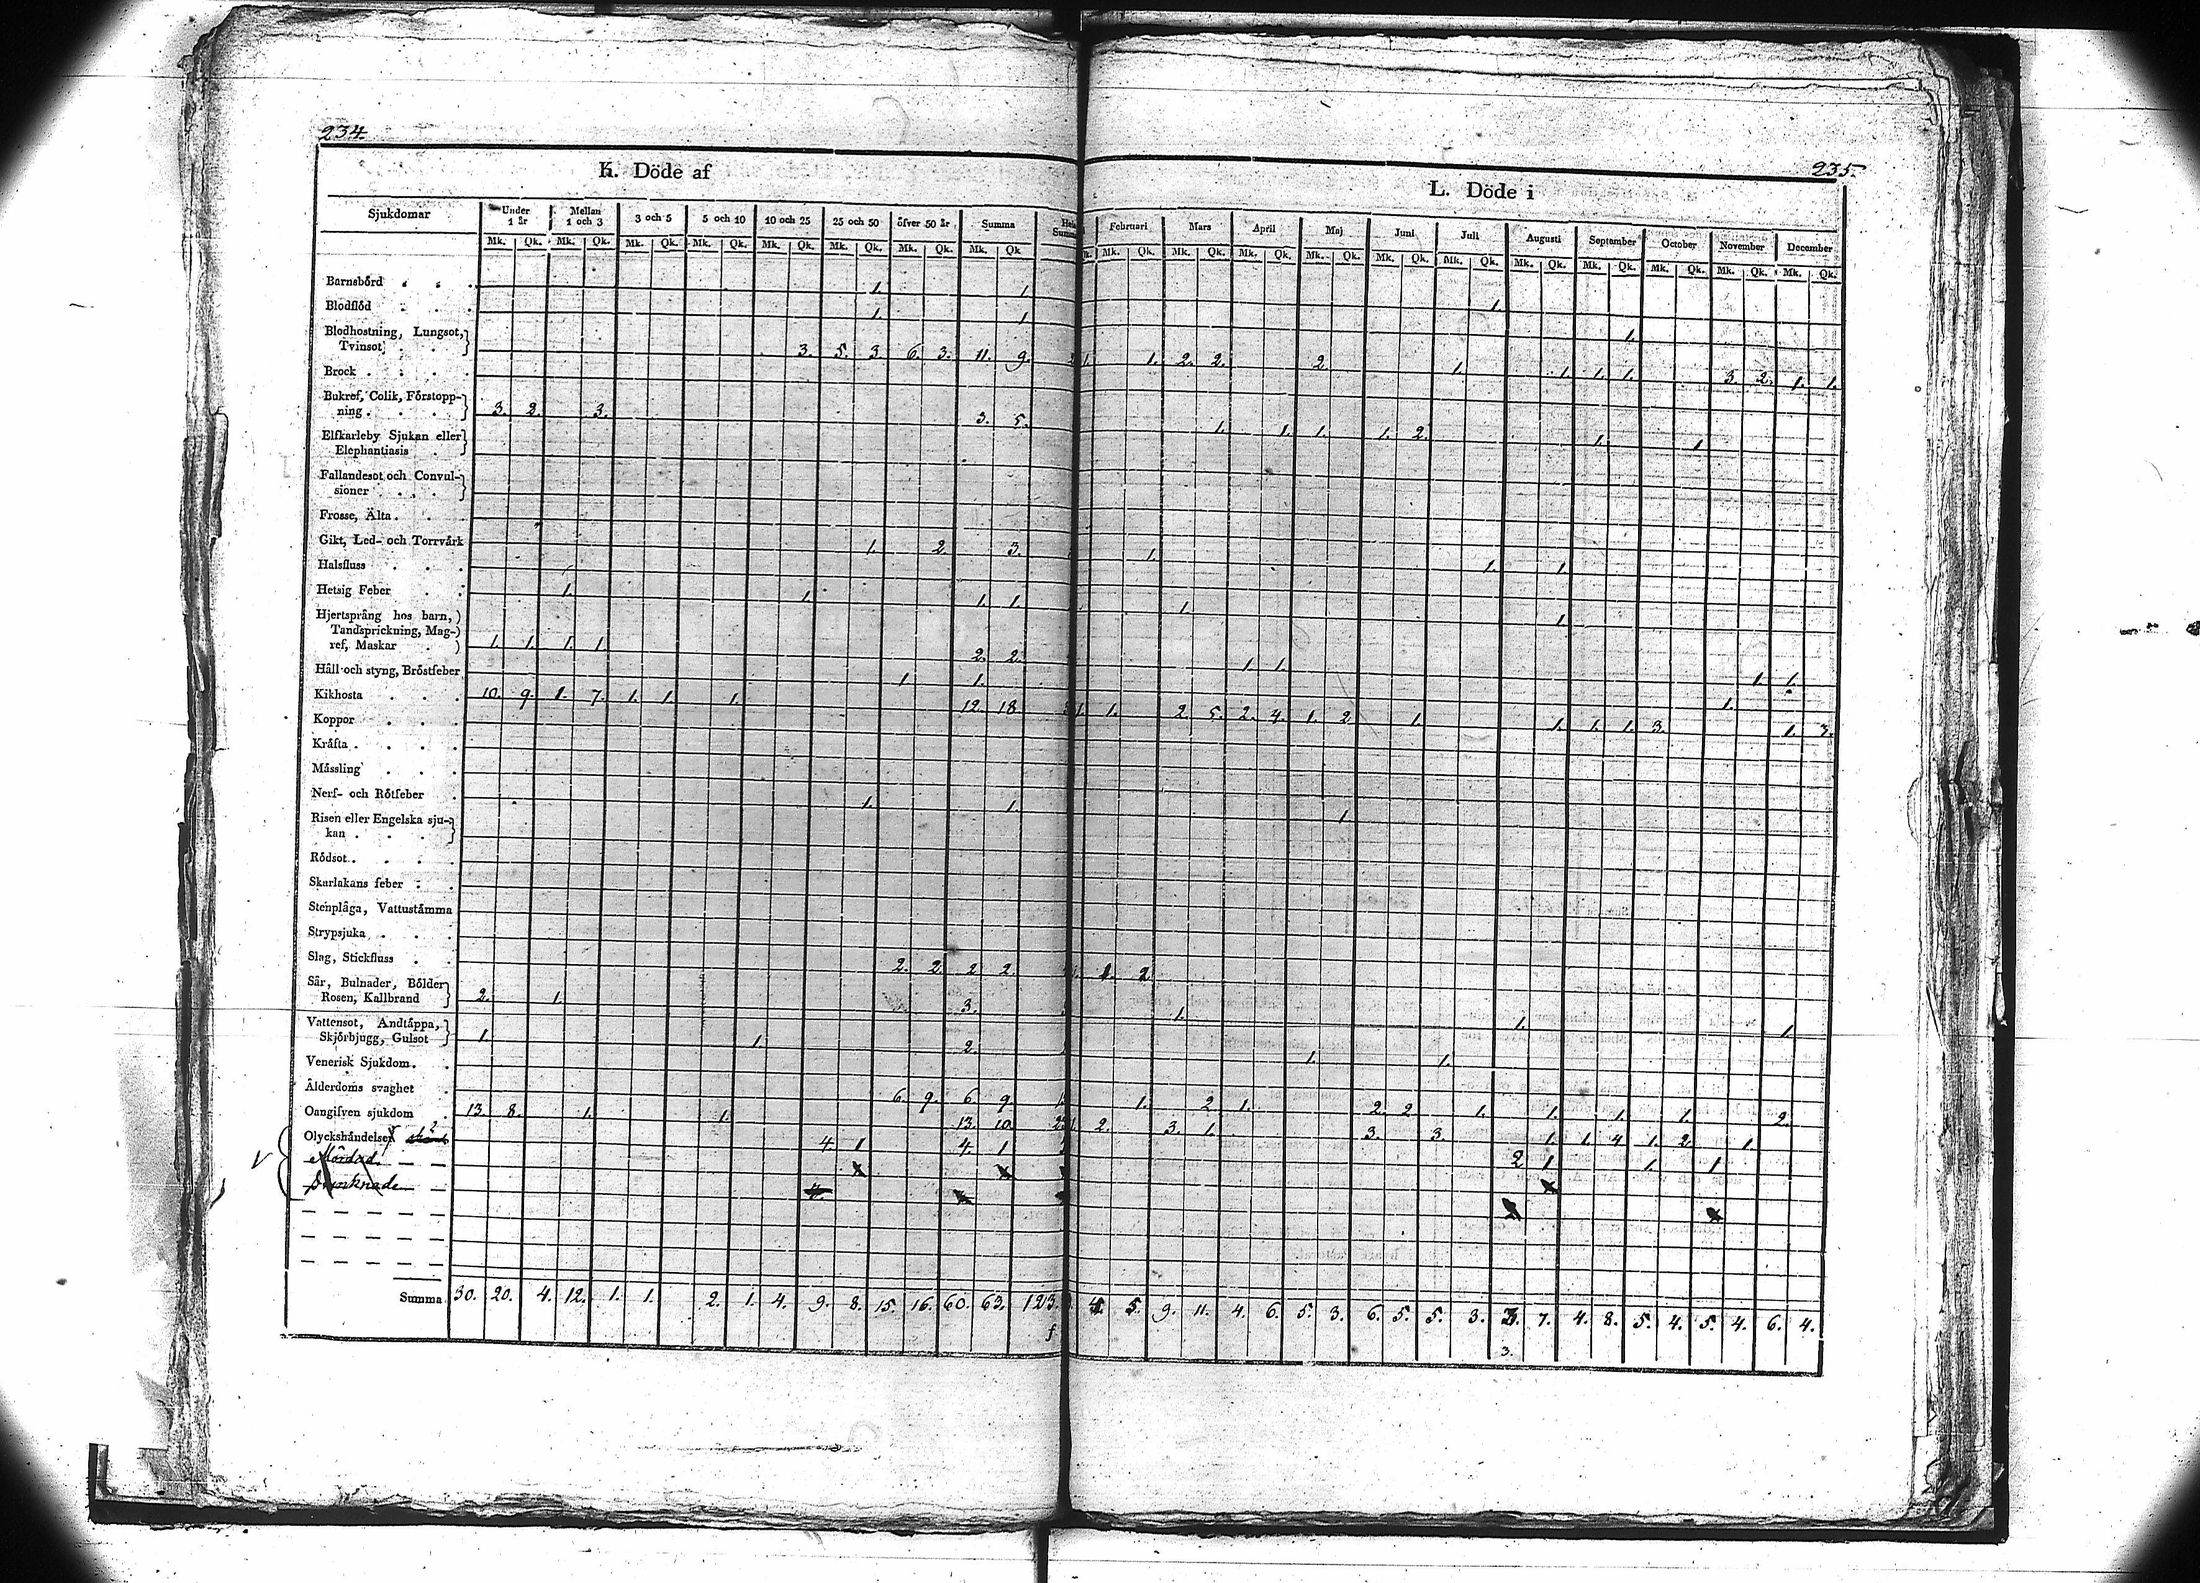 234.
K. Döde af
Sjukdomar Under 1 år Mellan 1 och 3 3 och 5 5 och 10 10 och 25 25 och 50 öfver 50 år Summa
Mk. Qk. Mk. Qk. Mk. Qk. Mk. Qk. Mk. Qk. Mk. Qk. Mk. Qk. Mk. Qk.
Barnsbörd 1. 1.
Blodflöd 1. 1.
Blodhostning, Lungsot,
Tvinsot 3. 5. 3. 6. 3. 11. 9.
Brock
Bukref, Colik, Förstopp-
ning 3. 2. 3. 3. 5.
Elfkarleby Sjukan eller
Elephantiasis
Fallandesot och Convul-
sioner
Frosse, Älta
Gikt, Led- och Torrvärk 1. 2. 3.
Halsfluss
Hetsig Feber 1. 1. 1. 1.
Hjertsprång hos barn,
Tandsprickning, Mag-
ref, Maskar 1. 1. 1. 1. 2. 2.
Håll och styng, Bröstfeber 1. 1.
Kikhosta 10. 9. 1. 7. 1. 1. 1. 12. 18.
Koppor
Kräfta
Mässling
Nerf- och Rötfeber 1. 1.
Risen eller Engelska sju-
kan
Rödsot
Skarlakans feber
Stenplåga, Vattustämma
Strypsjuka
Slag, Stickfluss 2. 2. 2. 2.
Sår, Bulnader, Bölder
Rosen, Kallbrand 2. 1. 3.
Vattensot, Andtäppa,
Skjörbjugg, Gulsot 1. 1. 2.
Venerisk Sjukdom
Ålderdoms svaghet 6. 9. 6. 9.
Oangifven sjukdom 13. 8. 1. 1. 13. 10.
Olyckshändelse 4. 1 4. 1
Mördad
Drunknade
Summa 30. 20. 4. 12. 1. 1. 2. 1. 4. 9. 8. 15. 16. 60. 63. 123.
235.
L. Döde i
Februari Mars April Maj Juni Juli Augusti September October November December
Mk. Qk. Mk. Qk. Mk. Qk. Mk. Qk. Mk. Qk. Mk. Qk. Mk. Qk. Mk. Qk. Mk. Qk. Mk. Qk. Mk. Qk.
1.
1.
1. 1. 2. 2. 2. 1. 1. 1. 1. 3. 2. 1. 1.
1. 1. 1. 1. 2. 1. 1.
1. 1. 1.
1. 1.
1. 1. 1. 1.
1.
1. 1. 2. 5. 2. 4. 1. 2. 1. 1. 1. 1. 3. 1. 3.
1.
1. 2.
1. 1. 1.
1. 1.
1. 2. 1. 2. 2. 1. 1. 1. 1. 2.
2. 3. 1. 3. 3. 1. 1. 4 1. 2. 1.
2 1 1. 1
5. 9. 11. 4. 6. 5. 3. 6. 5. 5. 3. 7. 4. 8. 5. 4. 5. 4. 6. 4.
3.